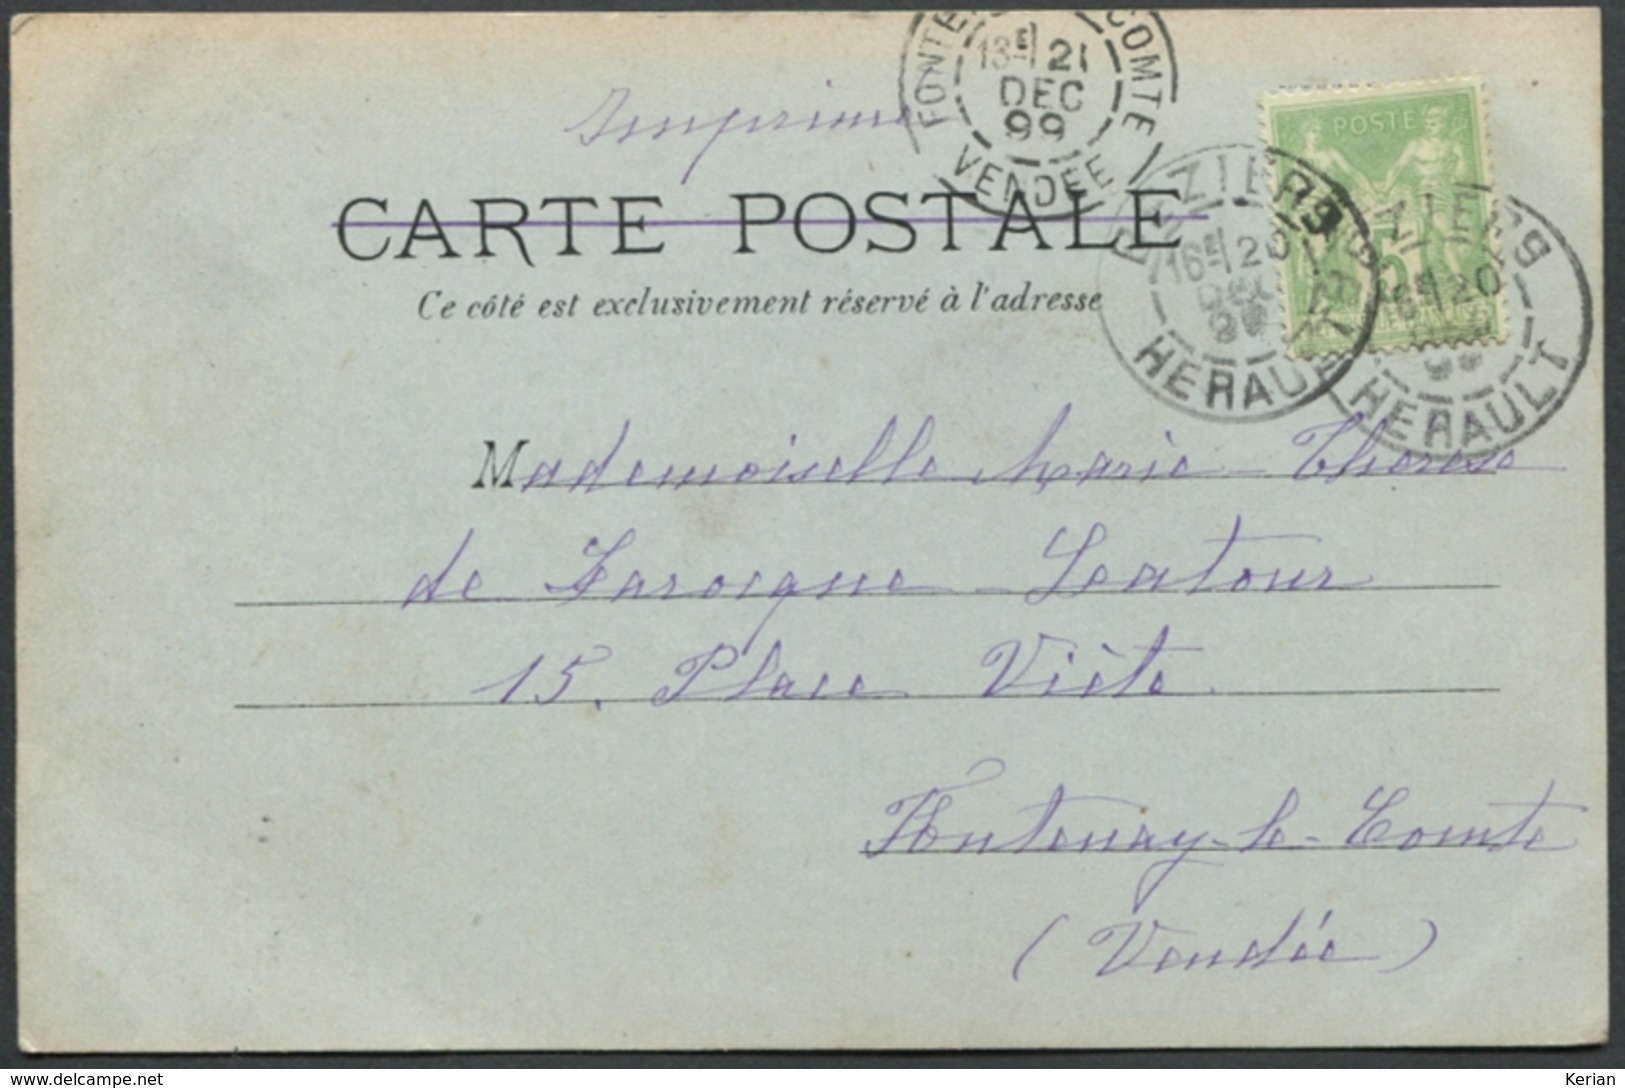 Imprimé
FONTENAY-LE-COMTE
13E 21
DEC
99
VENDÉE
POSTE
CARTE POSTALE
BEZIERS
16E 20
DEC
99
HERAULT
BEZIERS
16E 20
99
HERAULT
Ce côté est exclusivement réservé à l'adresse
Mademoiselle Marie-Therese
de Larocque-Latour
15, Place Viète
Fontenay-le-Comte
(Vendée)
www.delcampe.net
Kerian